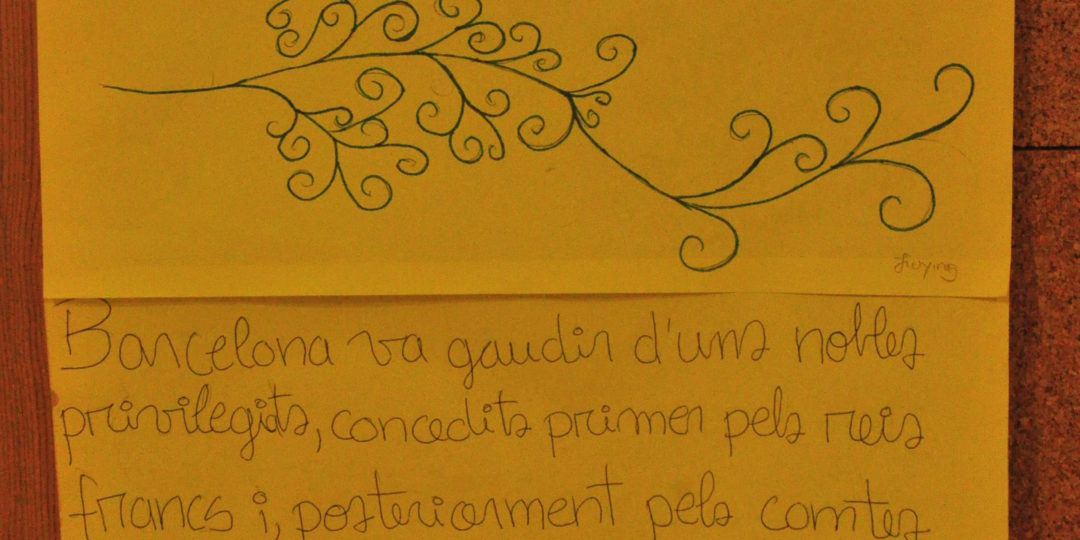 Luying
Barcelona va gaudir d'uns nobles
privilegits, concedits primer pels reis
francs i, posteriorment pels comtes